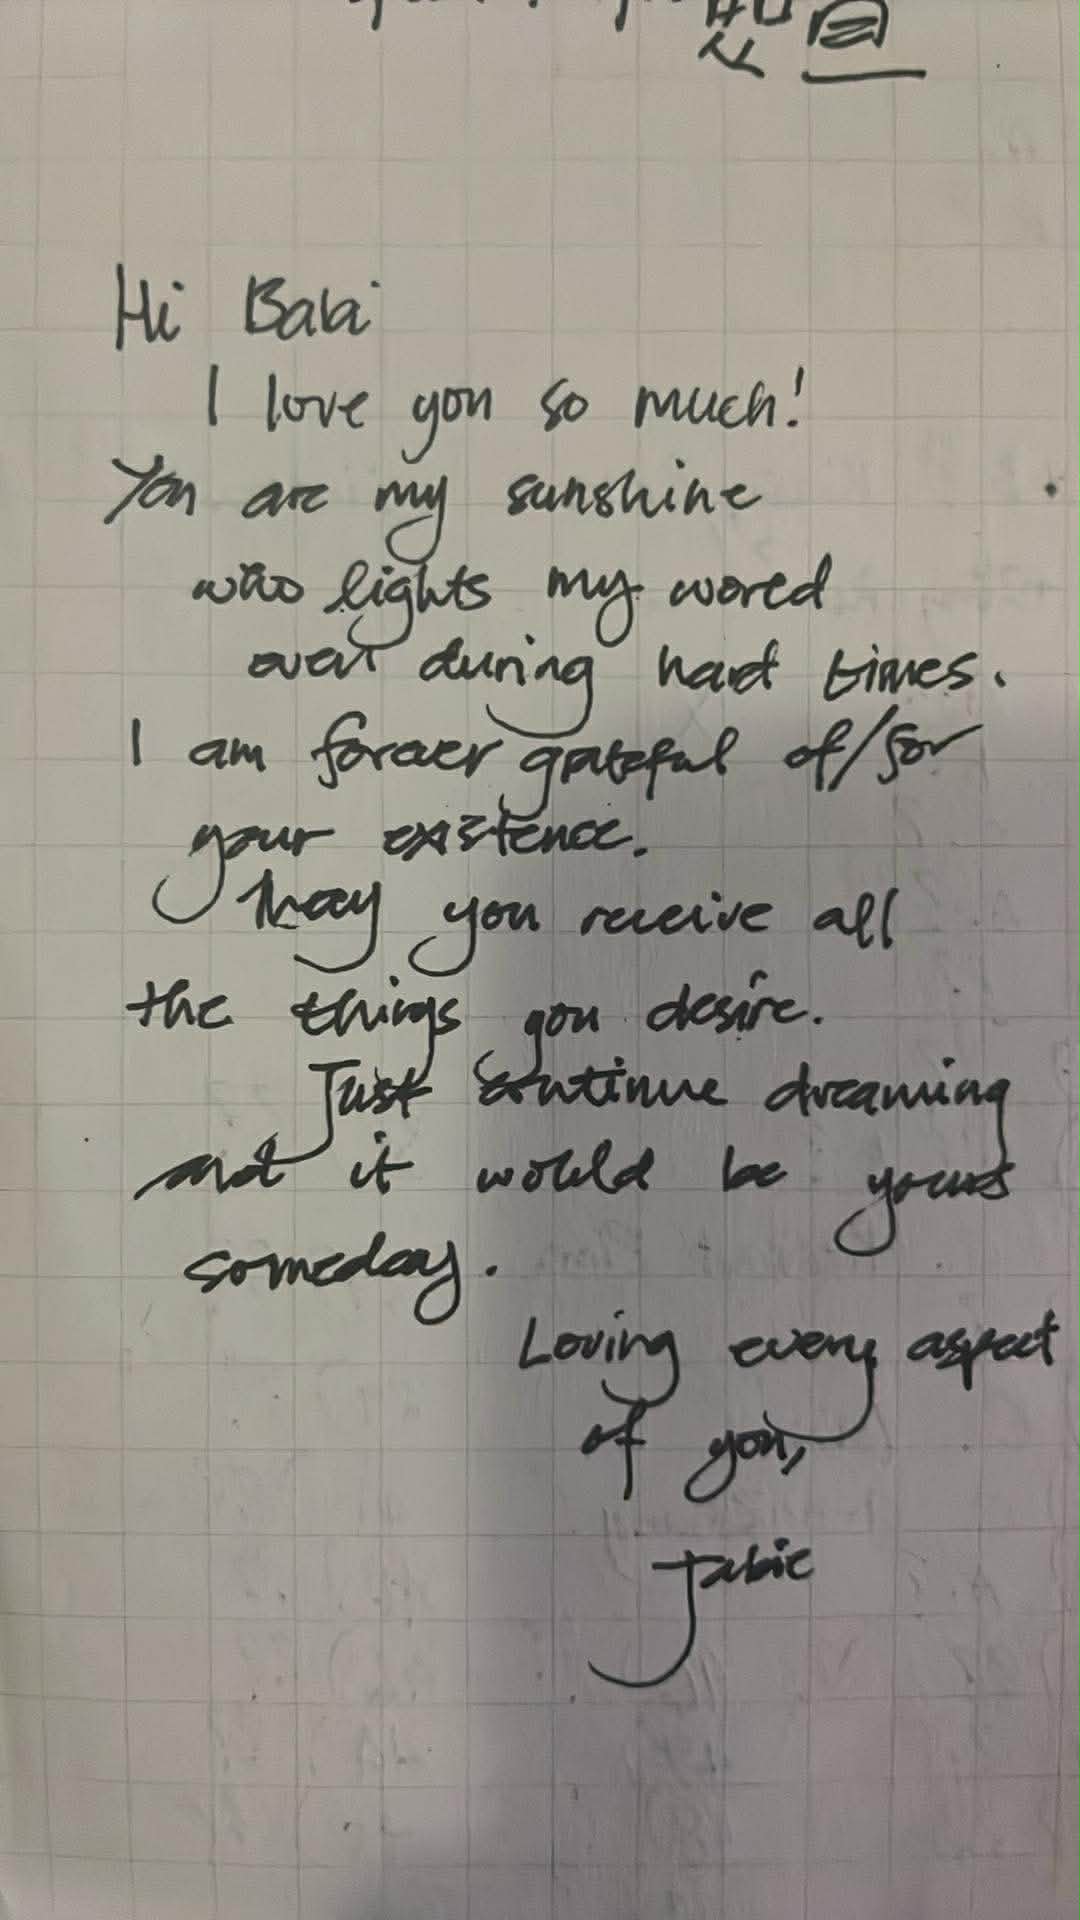 Hi Babi
I love you so much!
You are my sunshine
who lights my world
even during hard times.
I am forever grateful of/for
your existence.
May you receive all
the things you desire.
Just continue dreaming
and it would be yours
someday.
Loving every aspect
of you,
Jabie